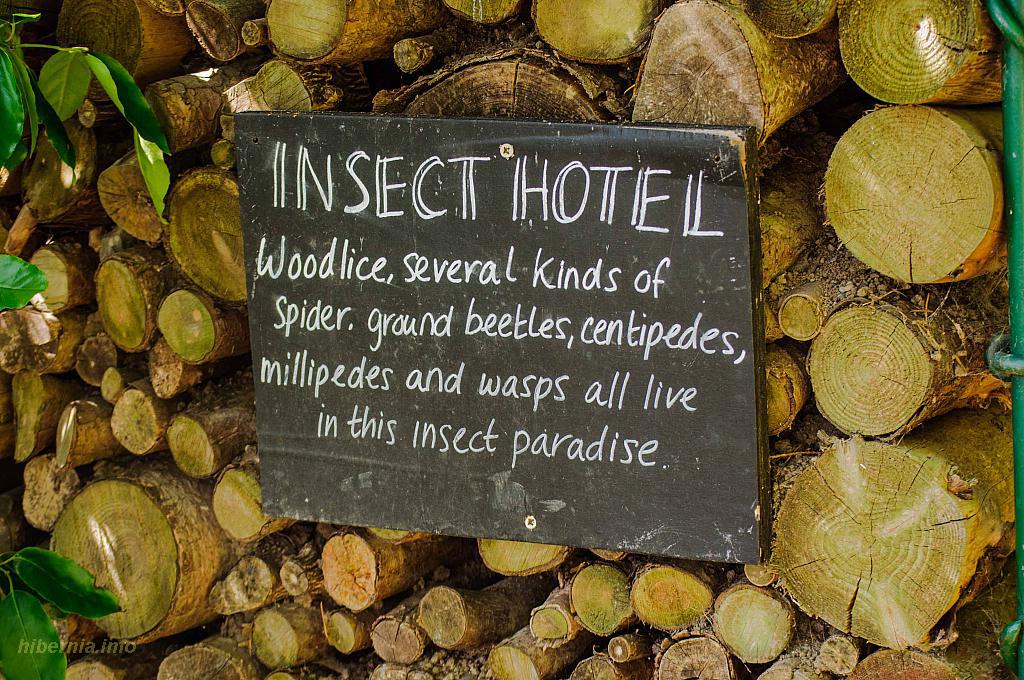 INSECT HOTEL
Woodlice, several kinds of
Spider. ground beetles, centipedes,
millipedes and wasps all live
in this insect paradise.
hibernia.info